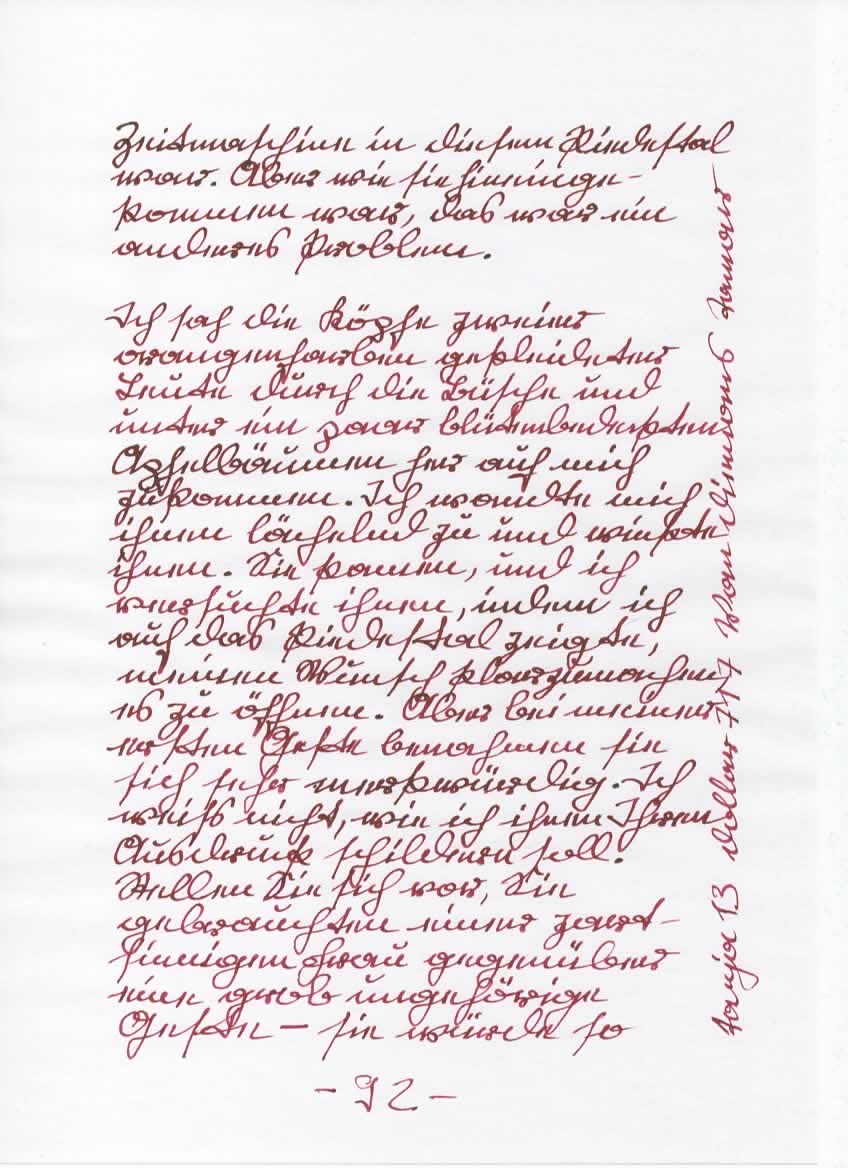 Zeitmaschine in diesem Piedestal
war. Aber wie sie hineinge-
kommen war, das war ein
anderes Problem.
Ich sah die Köpfe zweier
orangenfarben gekleideter
Leute durch die Büsche und
unter ein paar blütenbedeckten
Apfelbäumen her auf mich
zukommen. Ich wandte mich
ihnen lächelnd zu und winkte
ihnen. Sie kamen, und ich
versuchte ihnen, indem ich
auf das Piedestal zeigte,
meinen Wunsch klarzumachen
es zu öffnen. Aber bei meiner
ersten Geste benahmen sie
sich sehr merkwürdig. Ich
weiß nicht, wie ich ihnen Ihren
Ausdruck schildern soll.
Stellen Sie sich vor, Sie
gebrauchten einer zart-
sinnigen Frau gegenüber
eine grob ungehörige
Geste – sie würde so
- 92 -
Tanja 13 717 Van